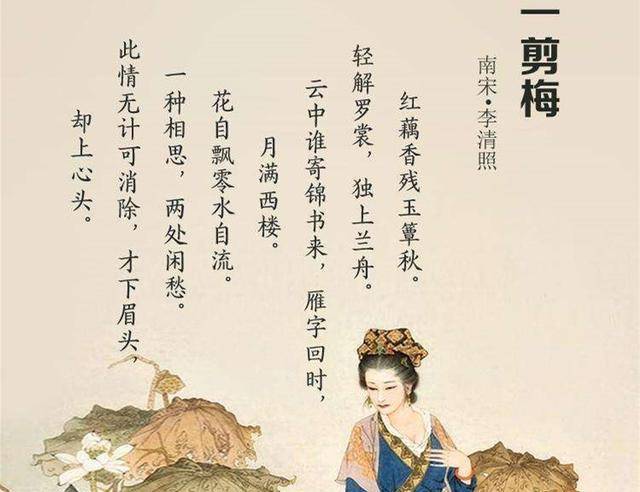 一剪梅
南宋·李清照
红藕香残玉簟秋。
轻解罗裳，独上兰舟。
云中谁寄锦书来，雁字回时，
月满西楼。
花自飘零水自流。
一种相思，两处闲愁。
此情无计可消除，才下眉头，
却上心头。